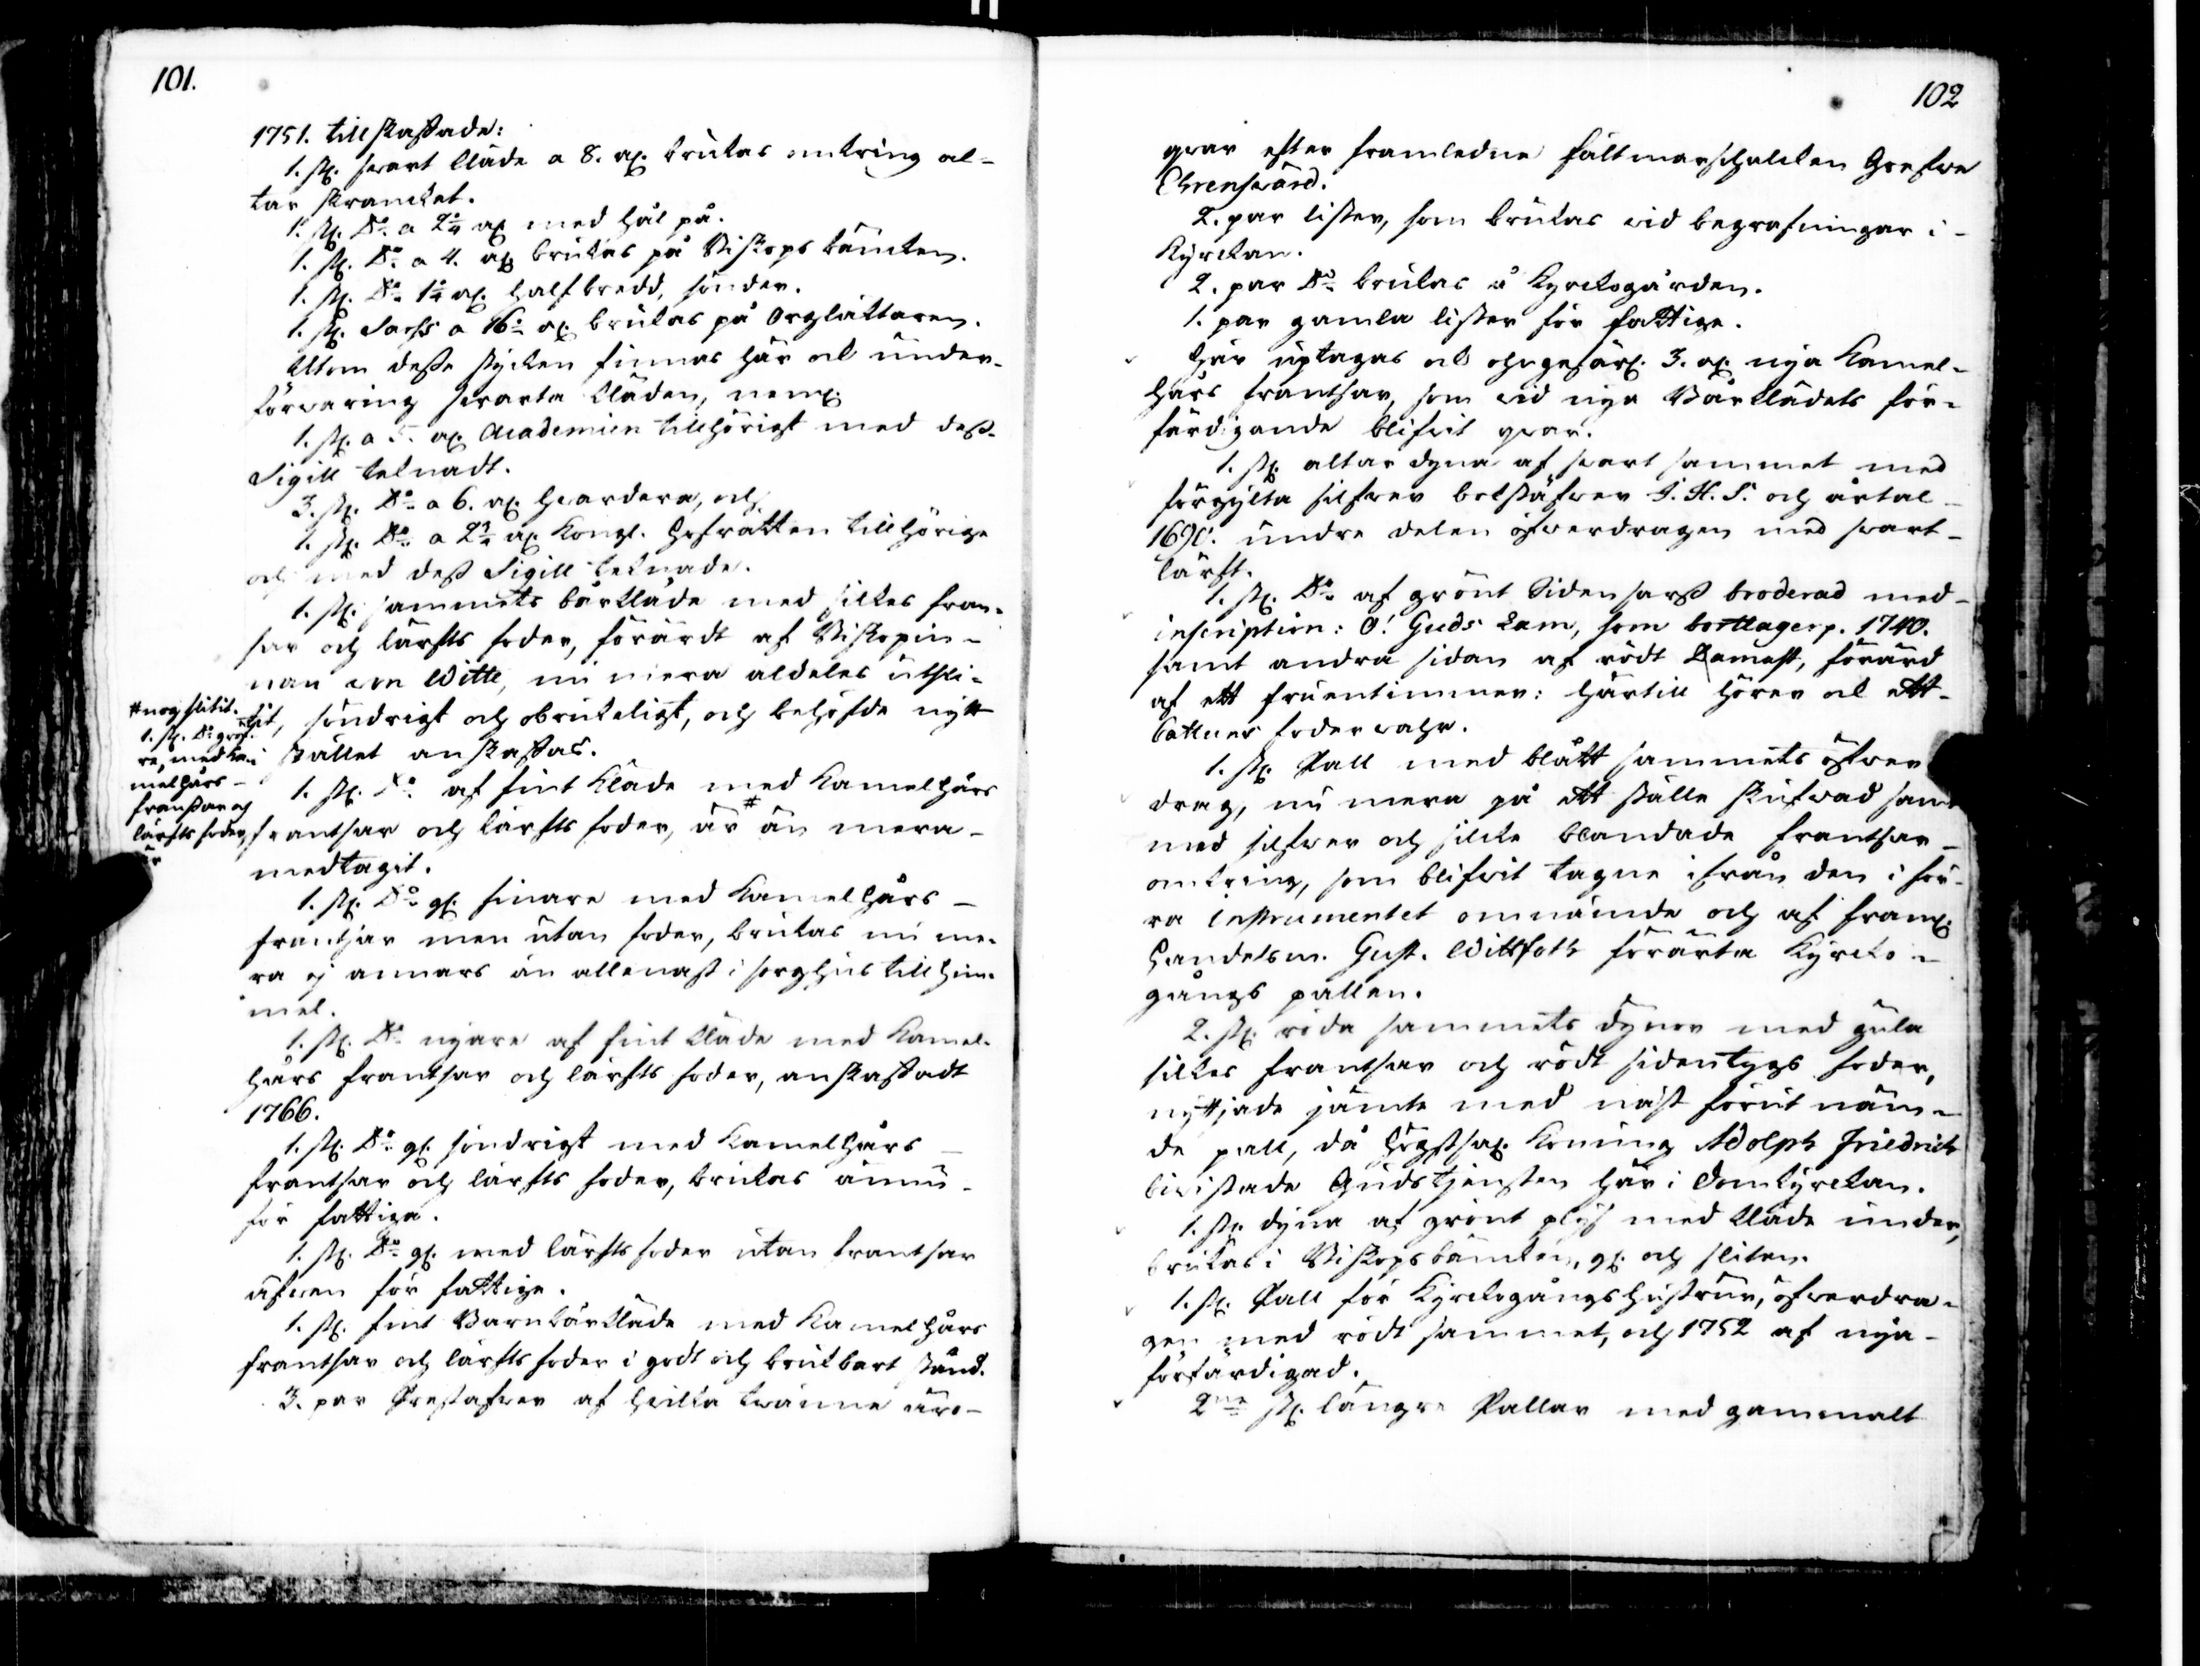 101.
1751. tillskaffade:
1. st. swart kläde a 8. al. brukas omkring al-
tar skranket.
1. st. D:o a 2 1/4 al. med hål på.
1. st. D:o a 4. al. brukas på Biskops bäncken.
1. st. D:o 1 1/4 al. half bredd, sönder.
1. st. Sarss a 16 al. brukas på Orglächtaren.
Utom desse stycken finnas här ock under-
förwaring swarta kläden, neml.
1. st. a 5. al. Academien tillhörigt med dess-
Sigill teknadt.
3. st. D:o a 6. al. hwardera, och
1. st. D:o a 2 1/2 al. Kongl. Hofrätten tillhörige
och med dess Sigill teknade.
1. st. sammets bårkläde med silkes fran-
sar och lärfts foder, förärdt af Biskopin-
nan von Witte, nu mera aldeles utsli-
tit, söndrigt och obrukeligt, och behöfde nytt
stället anskaffas.
1. st. D:o af fint kläde med Kamelhårs
frantsar och lärfts foder, är # än mera-
medtagit.
# nog slitit.
1. st. D:o gröf-
re, med Ka-
melhårs-
franssar och
lärfts foder,
är
1. st. D:o gl. finare med Kamelhårs-
frantsar men utan foder, brukas nu me-
ra ej annars än allenast i sorghus till him-
mel.
1. st. D:o nyare af fint kläde med Kamel-
hårs frantsar och lärfts foder, anskaffadt
1766.
1. st. D:o gl. söndrigt med Kamelhårs-
frantsar och lärfts foder, brukas ännu-
för fattiga.
1. st. D:o gl. med lärfts foder utan frantsar
äfwen för fattige.
1. st. fint Barnbårkläde med Kamelhårs
frantsar och lärfts foder i godt och brukbart stånd.
3. par Örestafwer af hwilka twänne äro-
102
qwar efter framledne fältmarschalcken Grefwe
Ehrenswärd.
2. par lister, som brukas wid begrafningar i-
Kyrckan.
2. par D:o brukas å Kyrckogården.
1. par gamla lister för fattige.
Här uptagas ock ohngefärl. 3. al. nya Kamel-
hårs frantsar, som wid nya Bårklädets för-
färdigande blifwit qwar.
1. st. altar dyna af swart sammet med
förgylta silfwer bokstäfwer I. H. S. och årtal-
1690. undre delen öfwerdragen med swart-
lärft.
1. st. D:o af grönt Siden sarss broderad med-
inscription: O! Guds Lam, som borttager p. 1740.
samt andra sidan af rödt Damast, förärd
af ett fruentimmer: härtill hörer ock ett-
Cattuns foderwahr.
1. st. Pall med blått sammets öfwer
drag, nu mera på ett ställe skufwad samt
med silfwer och silcke blandade frantsar-
omkring, som blifwit tagne ifrån den i för-
ra instrumentet omnämde och af framl.
Handelsm. Gust. Wittfoth förärta Kyrcko-
gångs pallen.
2. st. röda sammets dynor med gula
silkes frantsar och rödt sidentygs foder,
nyttjade jämte med näst förut näm-
de pall, då Högstsal. Konung Adolph Friedrich
biwistade Gudstjensten här i Domkyrckan.
1. st. dyna af grönt plys med kläde under,
brukas i Biskopsbäncken, gl. och sliten.
1. st. Pall för Kyrckogångshustrur, öfwerdra-
gen med rödt sammet, och 1752 af nya-
förfärdigad.
2ne st. längre Pallar med gammalt